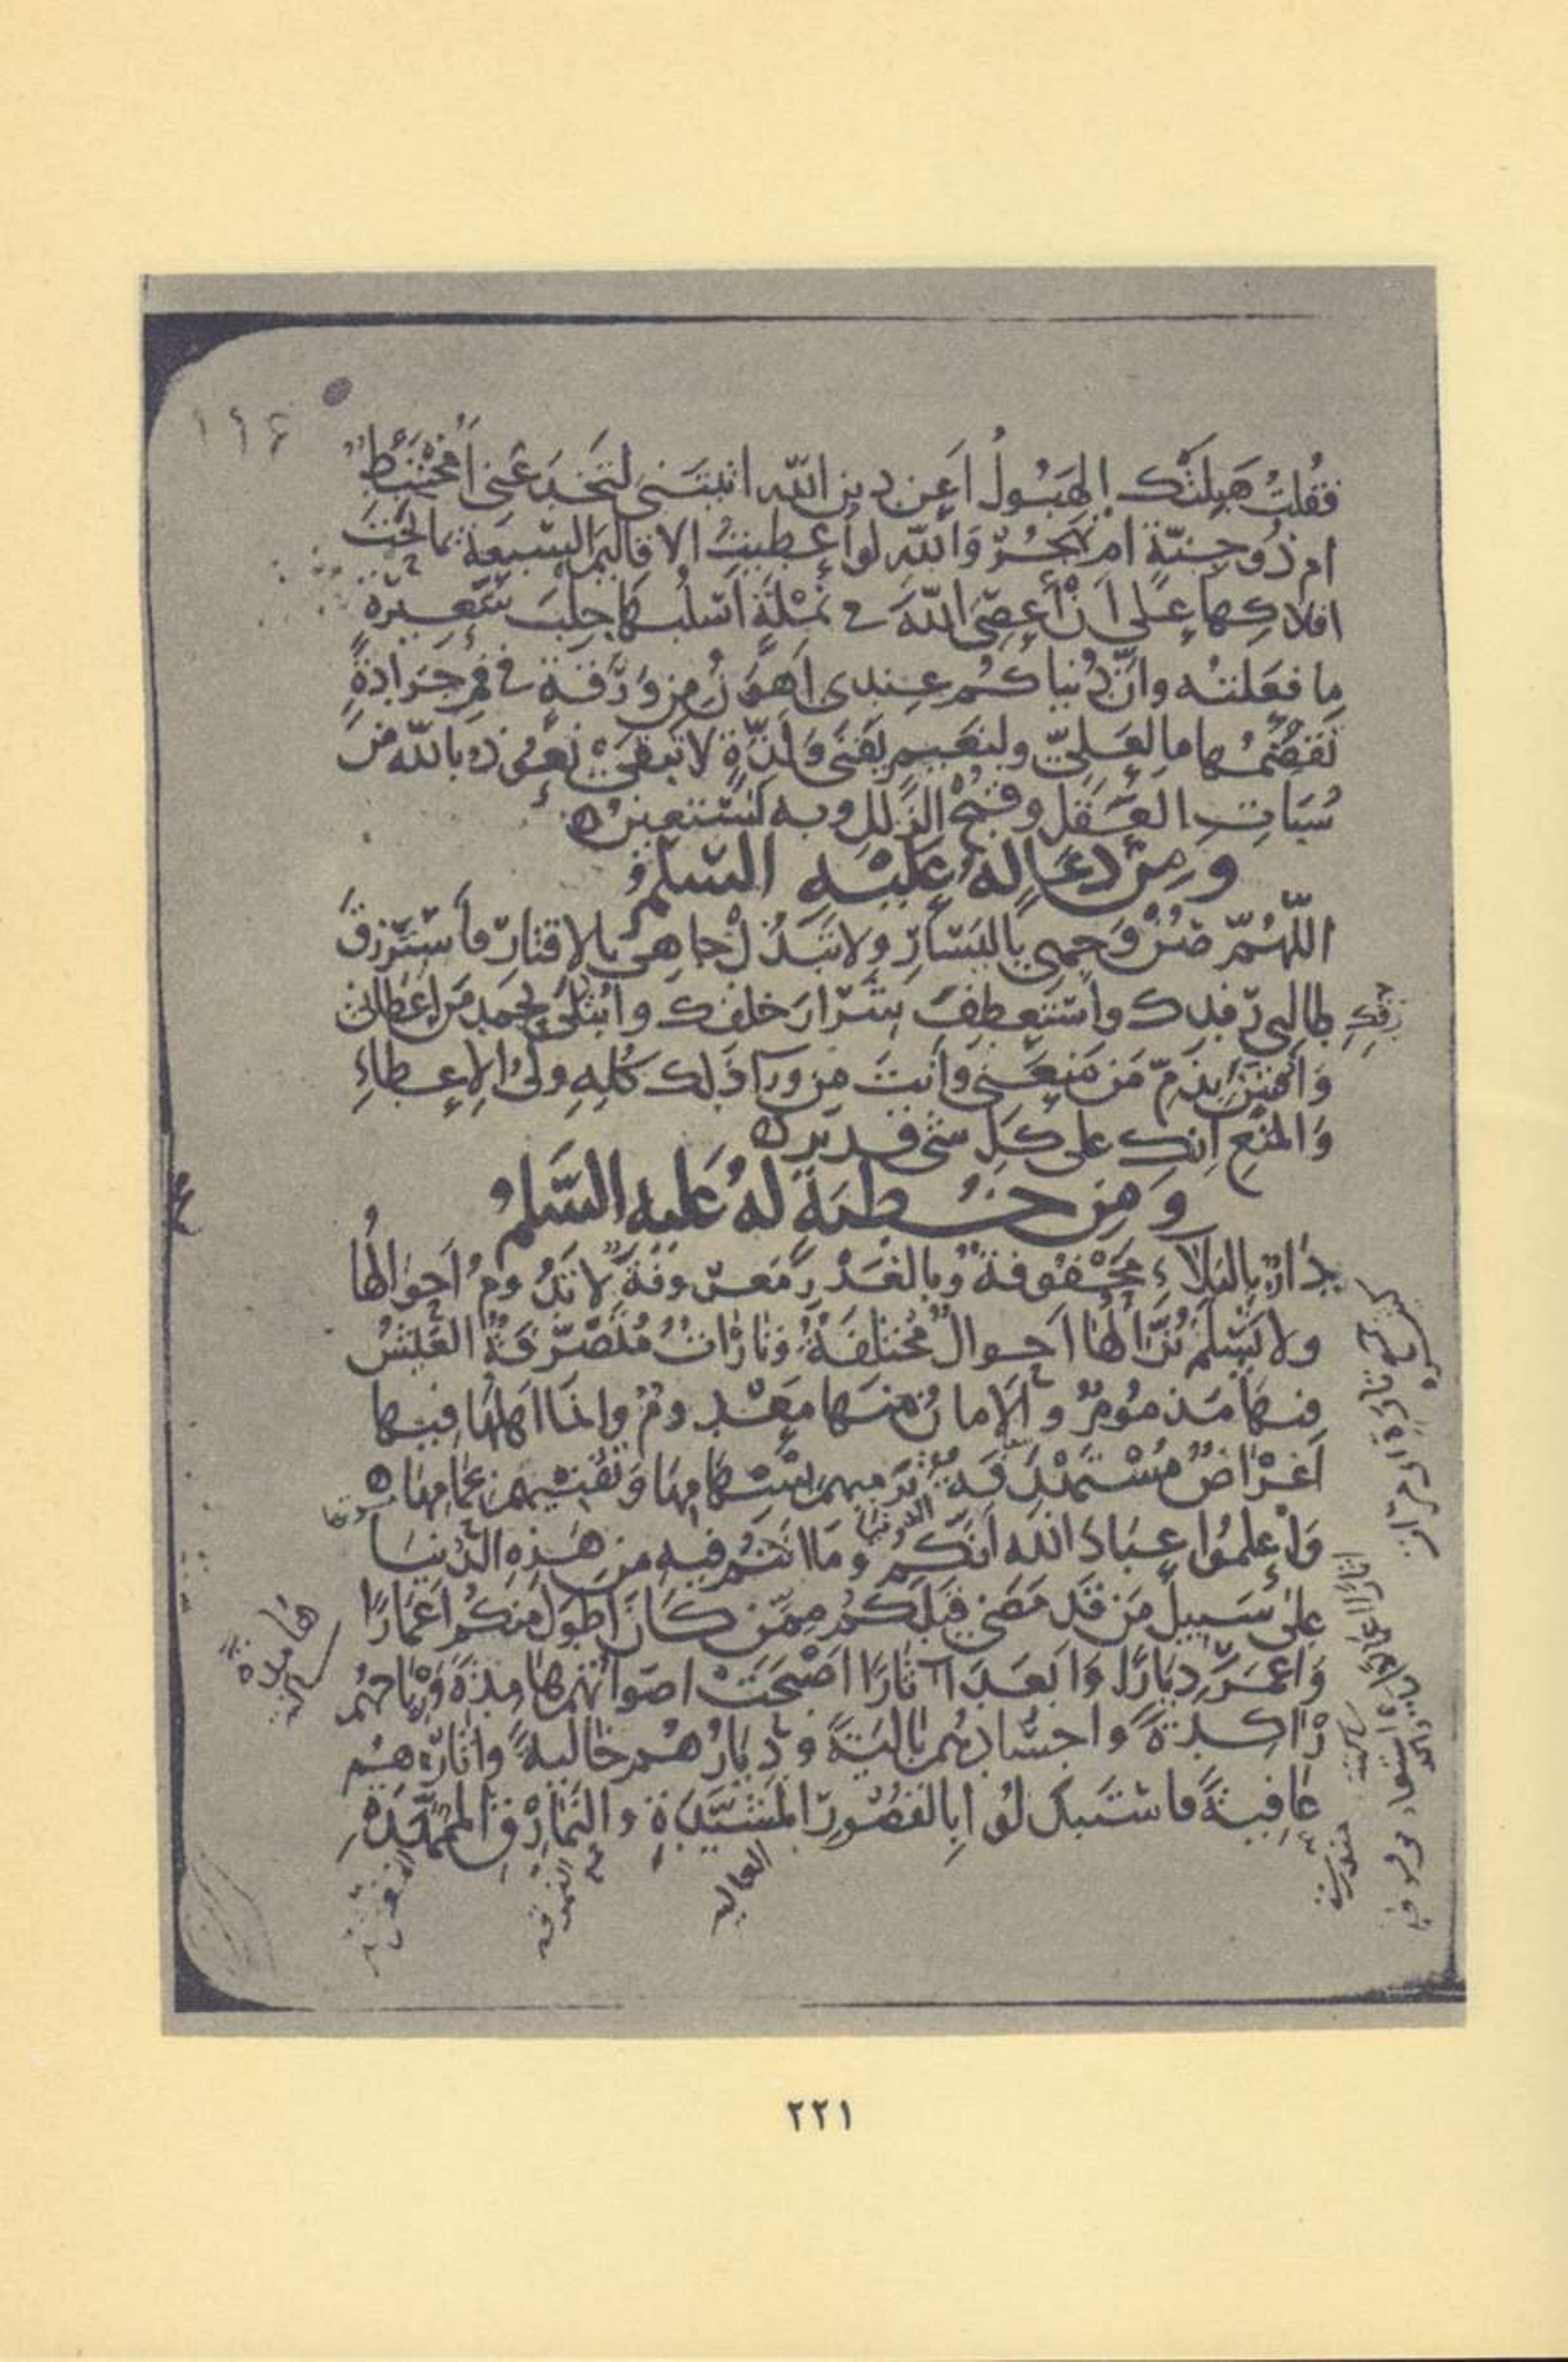 فَقُلْتُ هَبِلَتْكَ الهَبُولُ أَعَن دِينِ اللّه اتيتَنى لِتَخْدَعَنِى أَمُخْتَبِطٌ
ام ذُو جِنّةٍ ام تَهْجُرُ وَاللّهِ لو أُعْطِيتُ الاقاليمَ السَّبعَةَ بما تَحْتَ
افلاكِها عَلى أَنْ أَعْصِىَ اللّهَ فى نَمْلَةٍ أَسْلُبُها جِلْبَ شَعِيرَةٍ
ما فَعَلتُه وانّ دُنياكُم عِندى أَهوَنُ مِن وَرَقَةٍ فى فَمِ جَرَادَةٍ
تَقْضَمُها ما لِعَلِىّ ولِنَعِيمٍ يَفْنَى وَلَذَّةٍ لا تَبْقَى نَعُوذُ بالله مِن
سُبَاتِ العَقْلِ وقُبْحِ الزَّلَلِ وبه نَسْتَعِينُ
وَمِنْ دُعَاءٍ لهُ عَلَيْهِ السّلمُ
اللّهُمّ صُنْ وَجهِى باليَسَارِ ولا تَبْذُلْ جاهِى بالإقتارِ فأَسْتَرْزِقَ
طالِبى رِفدِك وأَسْتَعطِفَ شِرَارَ خلقِك وأُبْتَلَى بحمدِ مَن اعطانى
رزقك
وَأُفتَتَنَ بِذَمِّ مَن مَنَعَنِى وَانتَ مِن وَرَآءِ ذَلِك كُلِّهِ ولىُّ الإِعطاءِ
وَالمنعِ انك على كلِّ شىءٍ قدير
وَمِن خُطبَةٍ لهُ عَلَيه السَّلمُ
دَارٌ بالبَلَاءِ مَحْفُوفَةٌ وبالغَدْرِ مَعرُوفَةٌ لا تَدُومُ أَحوَالُها
ولا تَسْلَمُ نُزَّالُها أَحوالٌ مُختلِفَةٌ وتارَاتٌ مُتَصَرِّفَةٌ العَيْشُ
فيها مَذمُومٌ والأَمانُ مِنها مَعْدومٌ وانما اهلُها فيها
أَغْرَاضٌ مُسْتَهْدَفَةٌ تَرْمِيهِم بِسِهَامِها وَتُفْنِيهِم بِحِمَامِها
وَاعْلَمُوا عِبَادَ الله انّكُم وَمَا انتُم فيه مِن هَذِهِ الدُّنيَا
عَلى سَبِيلِ مَن قَد مَضَى قَبلَكُم مِمّن كَانَ أَطوَلَ مِنكُم أَعمَارًا
وَأَعمَرَ دِيَارًا وَأَبعَدَ آثَارًا أَصْبَحَتْ اصواتُهُم هَامِدَةً وَرِياحُهُم
هامدة
رَاكِدَةً واجسَادُهُم بَالِيَةً ودِيَارُهُم خَالِيَةً وآثَارُهُم
عَافِيَةً فاستَبدَلُوا بِالقُصُورِ المُشَيَّدَةِ والنَّمَارِقِ المُمَهَّدَةِ
العاليه
٢٢١